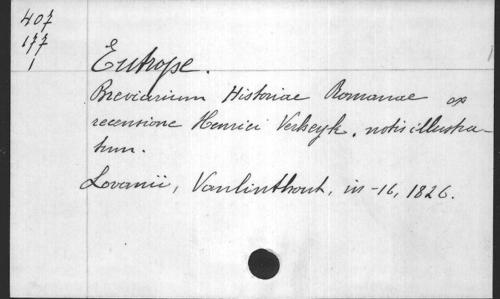 407
177
1
Eutrope.
Breviarium Historiae Romanae ex
recensione Henrici Verheyk, notis illustra-
tum.
Lovanii, Vanlinthout, in-16, 1826.